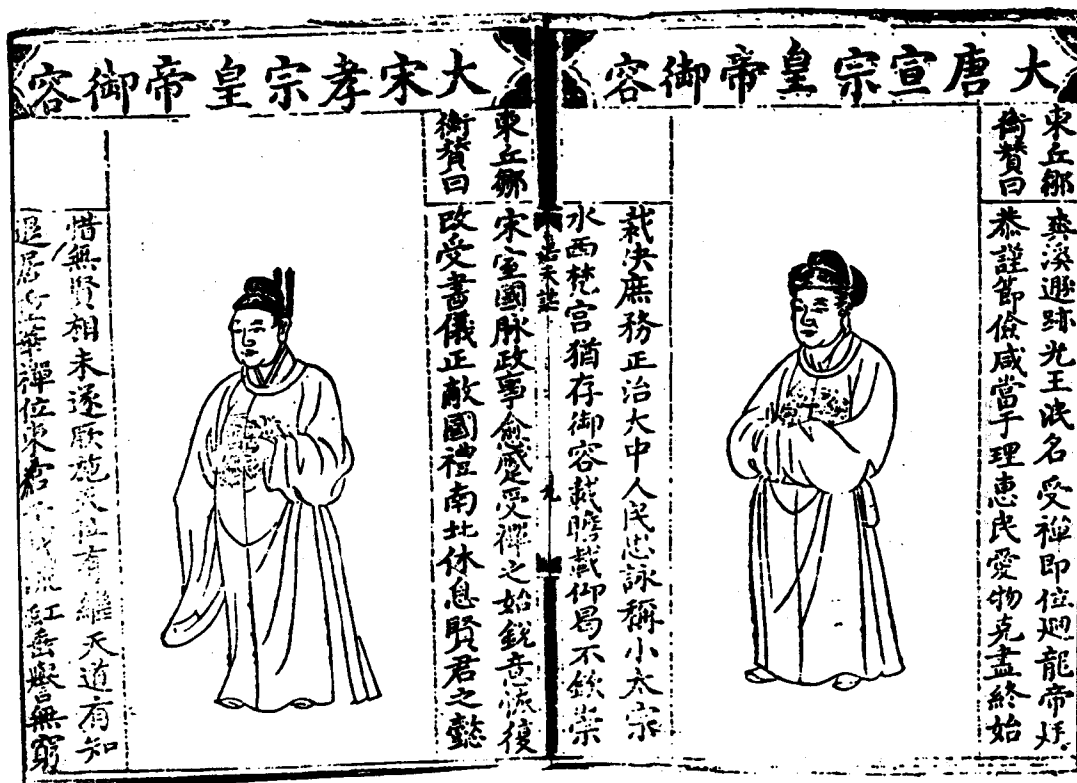 大唐宣宗皇帝御容
東丘鄒
衡贊曰
爽溪遯跡光王泯名受禪即位迴龍帝廷
恭謹節儉咸當于理惠民愛物克盡終始
裁決庶務正治大中人民思詠稱小太宗
水西梵宮猶存御容載瞻載仰曷不欽崇
九
大宋孝宗皇帝御容
東丘鄒
衡贊曰
宋室國脈政事愈蹙受禪之始銳意恢復
改受書儀正敵國禮南北休息賢君之懿
惜無賢相未遂厥施天位有繼天道有知
退居重華禪位東 流虹垂譽無窮